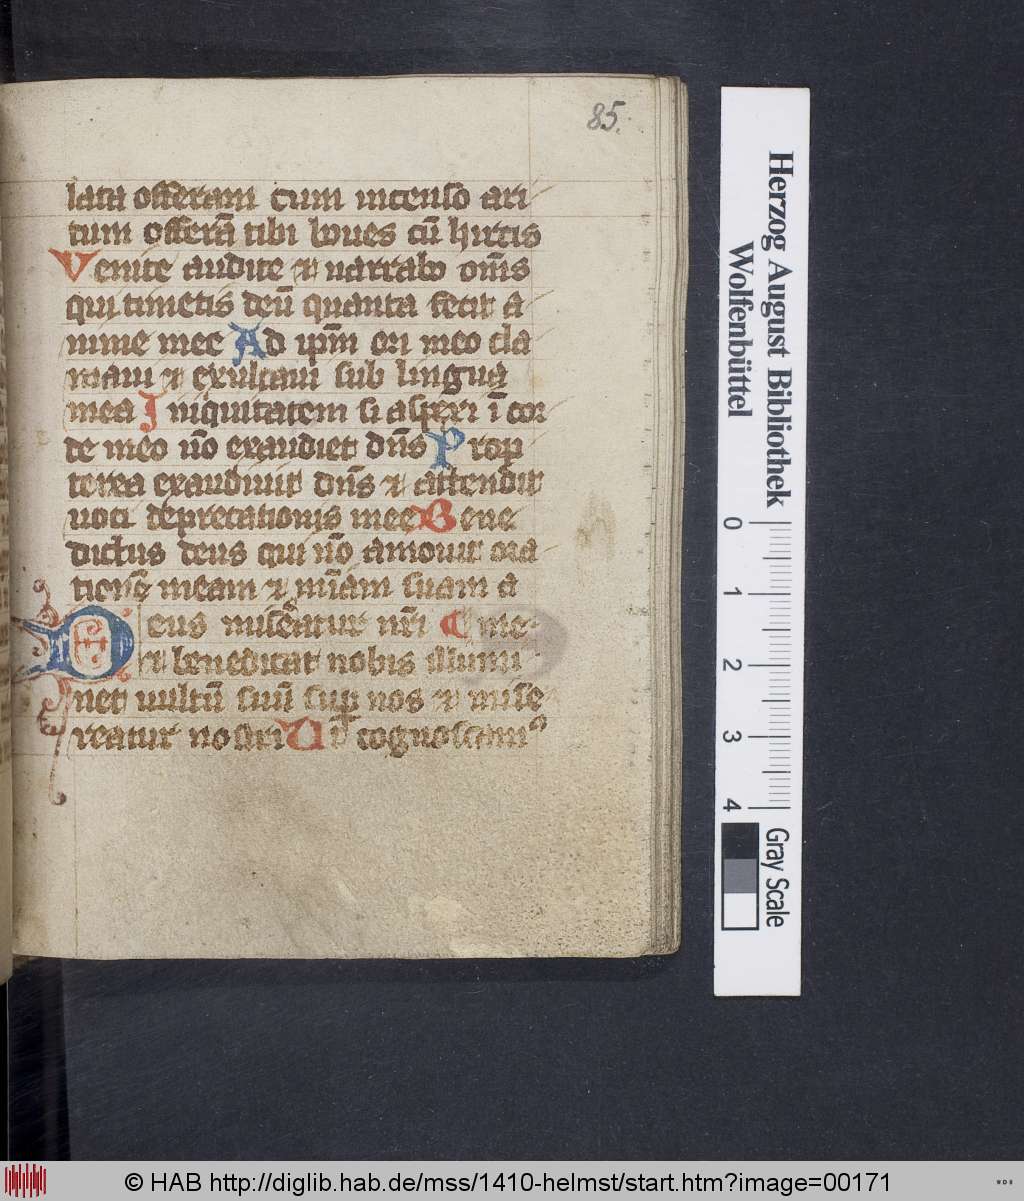 85.
lata offeram cum incenso ari
tum offerā tibi boues cū hircis
Venite audite et narrabo om̄s
qui timetis deū quanta fecit a
nime mee Ad ip̄m ori meo cla
maui et exultaui sub lingua
mea Iniquitatem si asperi ī cor
de meo nō exaudiet dn̄s Prop
terea exaudiuit dn̄s et attendit
uoci deprecationis mee Bene
dictus deus qui nō amouit ora
tionē meam et mīam suam a
Deus misēatur nr̄i me
et benedicat nobis illumi
net uultū suū sup̄ nos et mise
reatur nostri Ut cognoscamꝰ
Herzog August Bibliothek
Wolfenbüttel
0 1 2 3 4
Gray Scale
© HAB http://diglib.hab.de/mss/1410-helmst/start.htm?image=00171